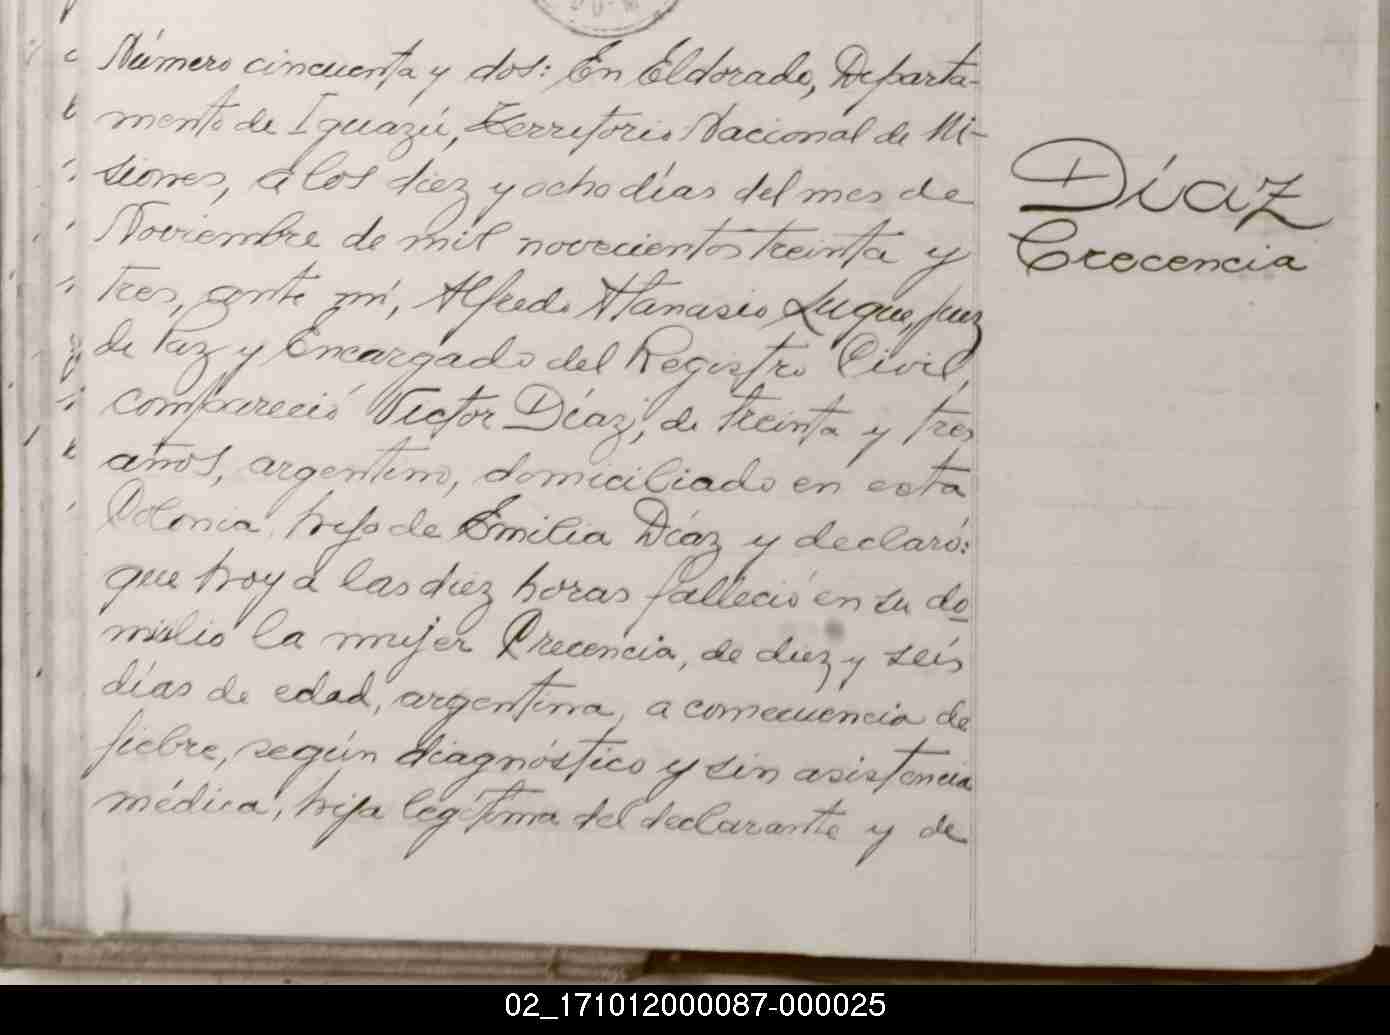 Número cincuenta y dos: En Eldorado, Departa-
mento de Iguazú, Territorio Nacional de Mi-
siones, a los diez y ocho días del mes de
Noviembre de mil novecientos treinta y
tres, ante mí, Alfredo Atanasio Luque, Juez
de Paz y Encargado del Registro Civil,
compareció Victor Díaz, de treinta y tres
años, argentino, domiciliado en esta
Colonia, hijo de Emilia Díaz y declaró:
que hoy a las diez horas falleció en su do
milio la mujer Crecencia, de diez y seis
días de edad, argentina, a consecuencia de
fiebre, según diagnóstico y sin asistencia
médica, hija legítima del declarante y de
Díaz
Crecencia
02_171012000087-000025